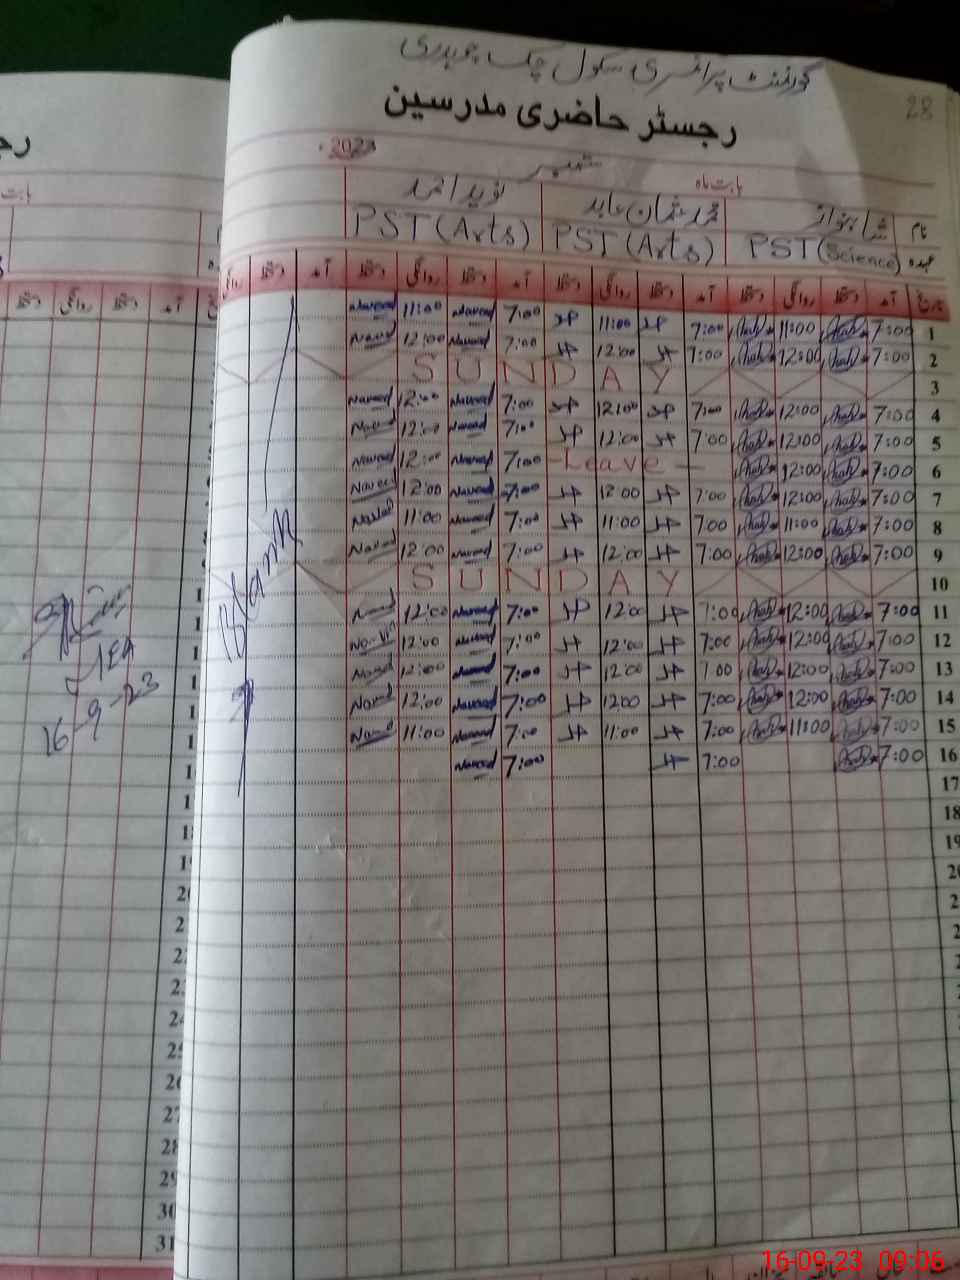 28
گورنمنٹ پرائمری سکول چک چوہدری
رجسٹر حاضری مدرسین
بابت ماہ ستمبر 2023
نام شاہنواز محمد عثمان عابد نوید احمد
عہدہ PST (Science) PST (Arts) PST (Arts)
تاریخ آمد دستخط روانگی دستخط آمد دستخط روانگی دستخط آمد دستخط روانگی دستخط آمد دستخط روانگی
1 7:00 11:00 7:00 11:00 7:00 Naveed 11:00 Naveed
2 7:00 12:00 7:00 12:00 7:00 Naveed 12:00 Naveed
3 SUNDAY
4 7:00 12:00 7:00 12:00 7:00 Naveed 12:00 Naveed
5 7:00 12:00 7:00 12:00 7:00 Naveed 12:00 Naveed
6 7:00 12:00 - Leave - 7:00 Naveed 12:00 Naveed
7 7:00 12:00 7:00 12:00 7:00 Naveed 12:00 Naveed
8 7:00 11:00 7:00 11:00 7:00 Naveed 11:00 Naveed
9 7:00 12:00 7:00 12:00 7:00 Naveed 12:00 Naveed
10 SUNDAY
11 7:00 12:00 7:00 12:00 7:00 Naveed 12:00 Naveed
12 7:00 12:00 7:00 12:00 7:00 Naveed 12:00 Naveed
13 7:00 12:00 7:00 12:00 7:00 Naveed 12:00 Naveed
14 7:00 12:00 7:00 12:00 7:00 Naveed 12:00 Naveed
15 7:00 11:00 7:00 11:00 7:00 Naveed 11:00 Naveed
16 7:00 7:00 7:00 Naveed
17
18
19
Blank
بابت
آمد دستخط روانگی دستخط
AEA
16-9-23
20
21
22
23
24
25
26
27
28
29
30
31
16-09-23 09:06